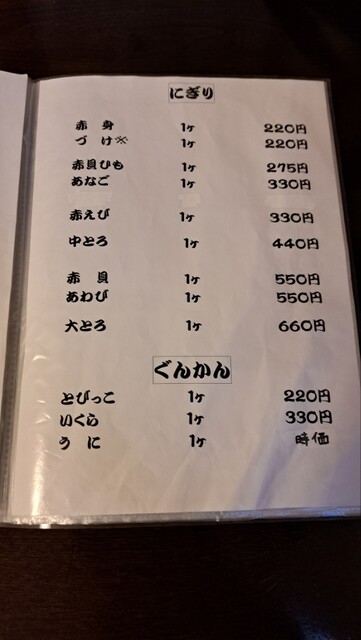 にぎり
赤身 1ヶ 220円
づけ※ 1ヶ 220円
赤貝ひも 1ヶ 275円
あなご 1ヶ 330円
赤えび 1ヶ 330円
中とろ 1ヶ 440円
赤貝 1ヶ 550円
あわび 1ヶ 550円
大とろ 1ヶ 660円
ぐんかん
とびっこ 1ヶ 220円
いくら 1ヶ 330円
うに 1ヶ 時価